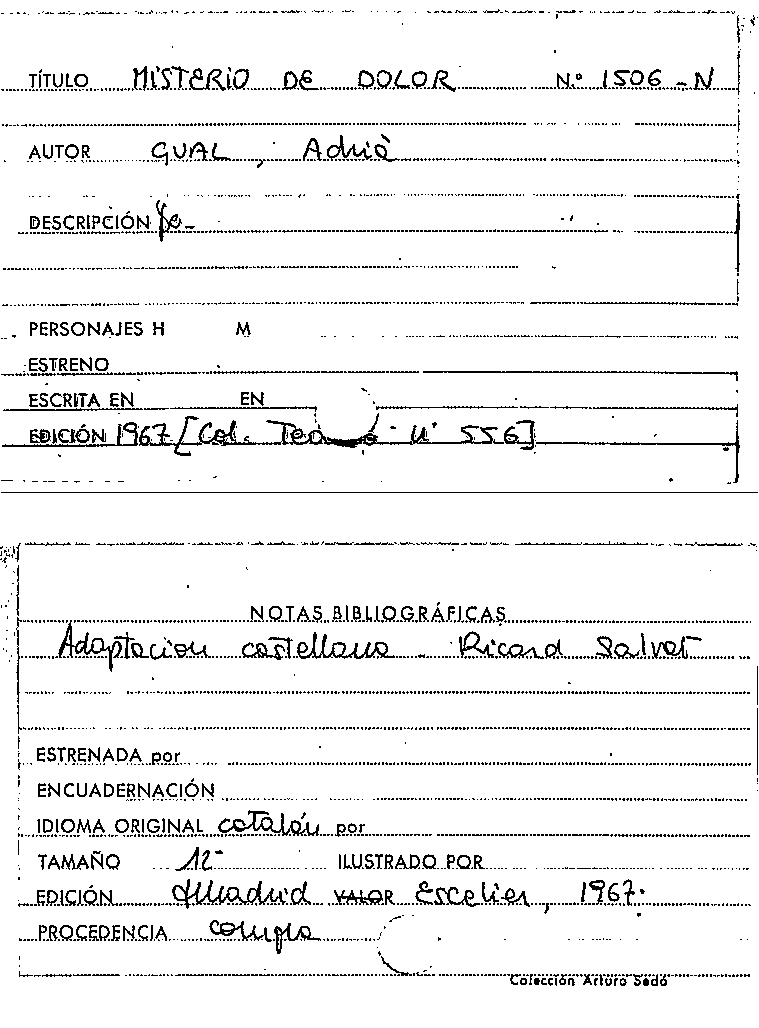 TÍTULO MISTERIO DE DOLOR N.º 1506-N
AUTOR GUAL, Adrià
DESCRIPCIÓN
PERSONAJES H M
ESTRENO
ESCRITA EN EN
EDICIÓN 1967 [Col. Teatro Nº 556]
NOTAS BIBLIOGRÁFICAS
Adaptacion castellana - Ricard Salvat
ESTRENADA por
ENCUADERNACIÓN
IDIOMA ORIGINAL catalán por
TAMAÑO 12º ILUSTRADO POR
EDICIÓN Madrid VALOR Escelier, 1967.
PROCEDENCIA compra
Colección Arturo Sedó